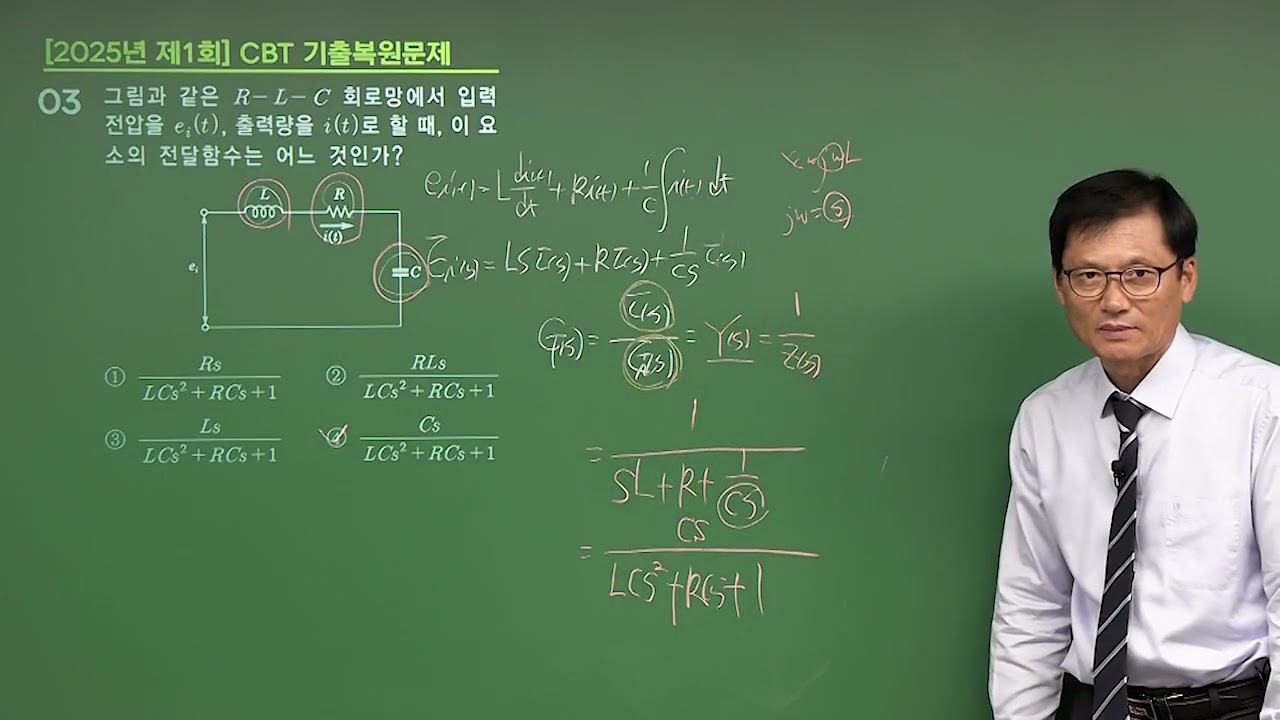 [2025년 제1회] CBT 기출복원문제
03 그림과 같은 R-L-C 회로망에서 입력
전압을 e_i(t), 출력량을 i(t)로 할 때, 이 요
소의 전달함수는 어느 것인가?
L R
i(t)
e_i
C
① Rs / (LCs²+RCs+1) ② RLs / (LCs²+RCs+1)
③ Ls / (LCs²+RCs+1) ④ Cs / (LCs²+RCs+1)
e_i(t) = L di(t)/dt + Ri(t) + 1/C ∫i(t) dt
E_i(s) = LSI(s) + RI(s) + 1/CS I(s)
G(s) = I(s)/E(s) = Y(s) = 1/Z(s)
= 1 / (SL+R+1/CS)
= CS / (LCS²+RCS+1)
jωL
jω = S